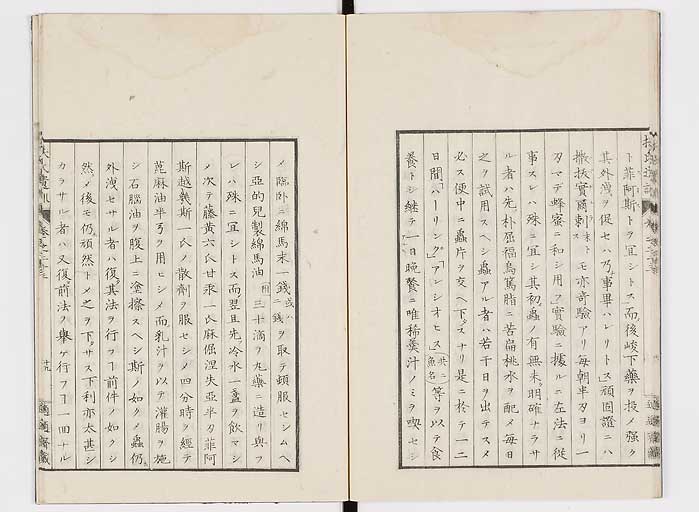 ト菲阿斯トヲ宜シトス而後峻下藥ヲ投メ强ク
其外洩ヲ促セハ乃事畢ハレリトス頑固證ニハ
撒抜實爾刺モ亦奇驗アリ毎朝半刃ヨリ一
刃マデ蜂蜜ニ和シ用フ實驗ニ據ルニ左法ニ從
事スレハ殊ニ宜シ其初蟲ノ有無未明確ナラサ
ル者ハ先朴屈福烏篤脂ニ苦扁桃水ヲ配メ毎日
之ヲ試用スヘシ蟲アル者ハ若干日ヲ出テスメ
必ス便中ニ蟲片ヲ交ヘ下スナリ是ニ於テ一二
日間ハーリング、アレシオヒス共ニ魚名等ヲ以テ食
養トシ継テ一日晩餐ニ唯稀羹汁ノミヲ喫セシ
メ臨卧ニ綿馬末一錢或ハ二錢ヲ取テ頓服セシムヘ
シ亞的兒製綿馬油三十滴ヲ丸藥ニ造リ與フ
レハ殊ニ宜シトス而翌旦先冷水一盞ヲ飲マシ
ノ次テ藤黃六氏甘汞一氏麻倔涅失亞半刃菲阿
斯越幾斯一氏ノ散劑ヲ服セシメ四分時ヲ經テ
蓖麻油半弓ヲ用ヒシメ而乳汁ヲ以テ灌腸ヲ施
シ石腦油ヲ腹上ニ塗擦スヘシ斯ノ如クメ蟲仍
外洩セサル者ハ復其法ヲ行フヿ前件ノ如クシ
然メ後モ仍頑然トメ之ヲ下サス下利亦太甚シ
カラサル者ハ又復前法ヲ擧ケ行フヿ一四ナル
十九